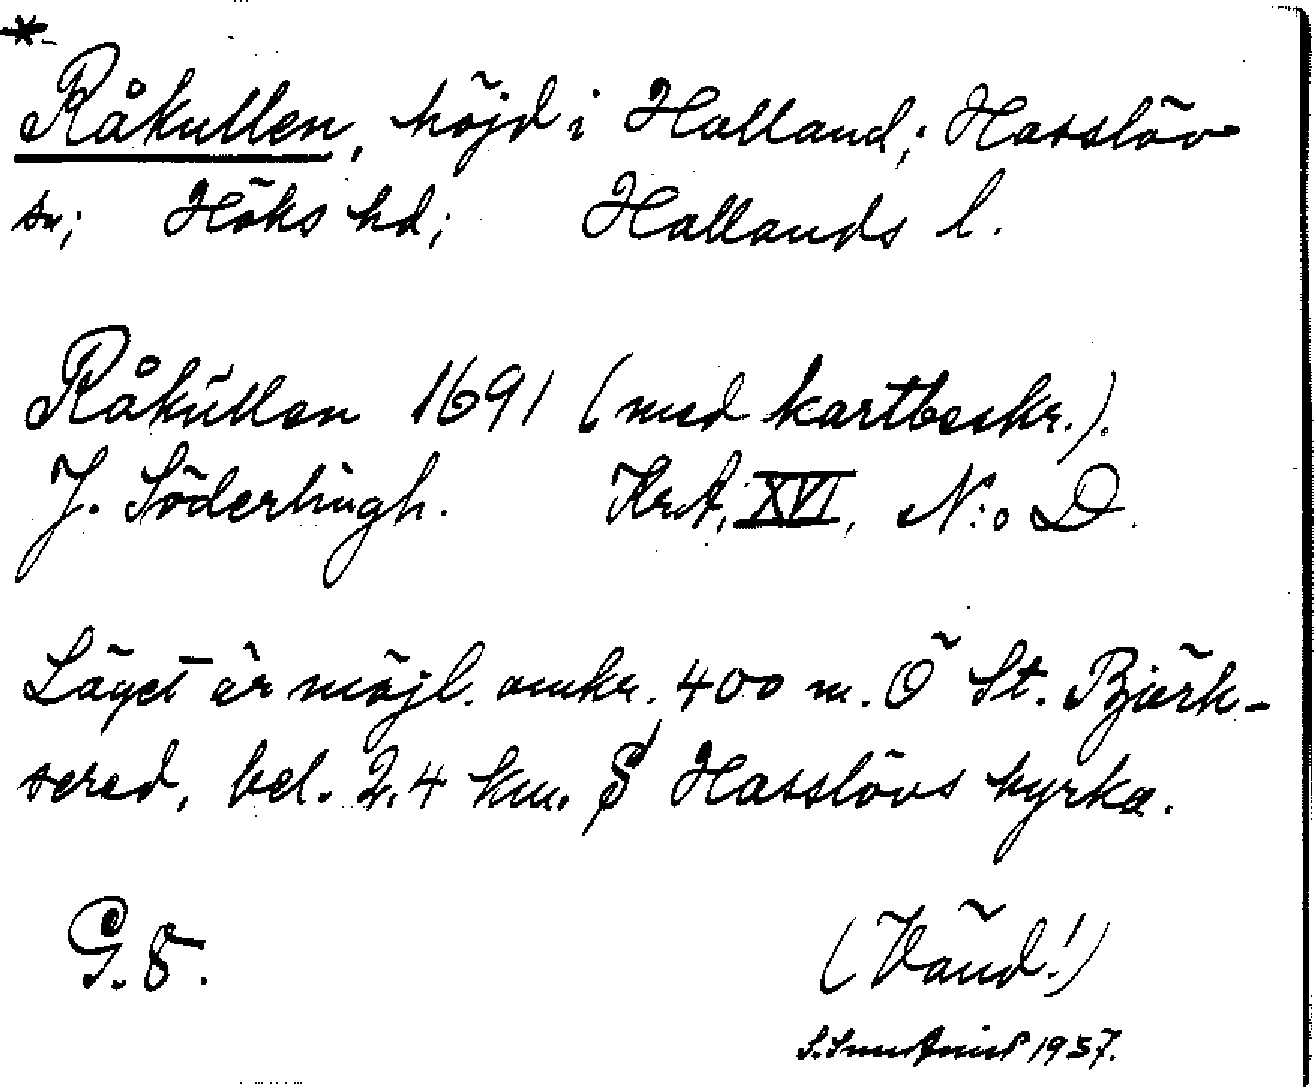 *
Råkullen, höjd i Halland; Hasslöv
sn; Höks hd; Hallands l.
Råkŭllen 1691 (med kartbeskr.).
J. Söderlingh. KrA, XVI, N:o D.
Läget är möjl. omkr. 400 m. Ö St. Björk-
sered, bel. 2.4 km. S Hasslövs kyrka.
G.8.
(Vänd!)
1937.